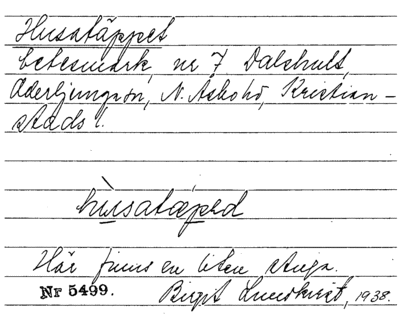 Husatäppet
betesmark, nr 7 Dalshult,
Oderljunga sn, N. Åsbo hd, Kristian-
stads l.
hùsatæpəd
Här finns en liten stuga.
Nr 5499. Birgit Lundkvist, 1938.